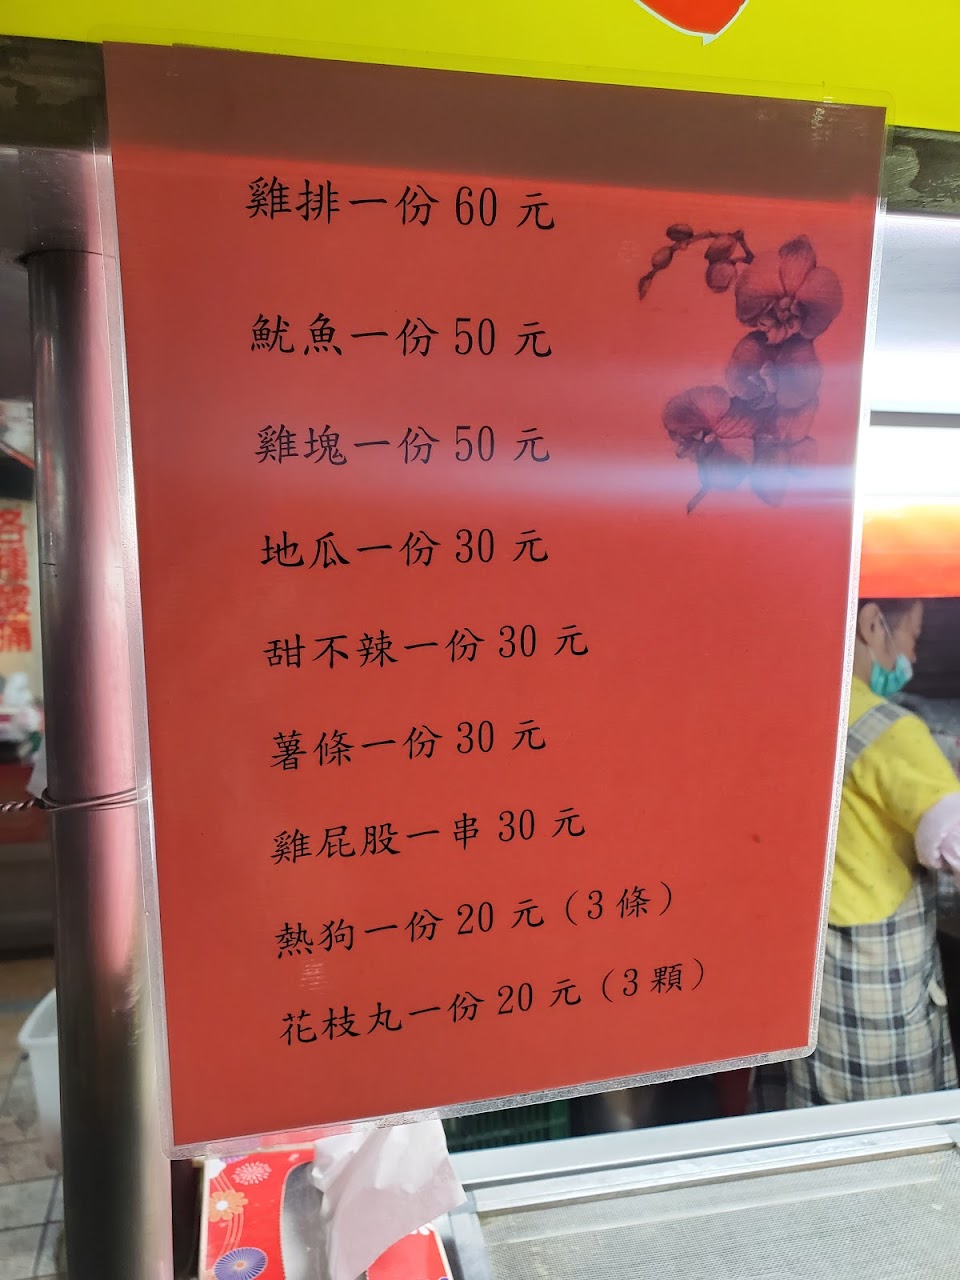 雞排一份 60 元
魷魚一份 50 元
雞塊一份 50 元
地瓜一份 30 元
甜不辣一份 30 元
薯條一份 30 元
雞屁股一串 30 元
熱狗一份 20 元（3 條）
花枝丸一份 20 元（3 顆）
各種
痛